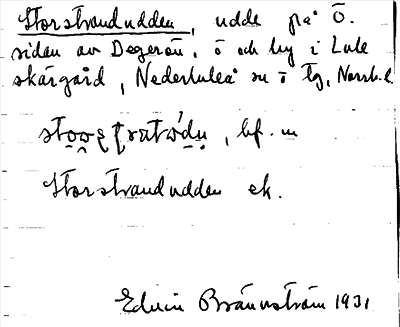 Storstrandudden, udde på Ö.
sidan av Degerön, ö och by i Lule
skärgård, Nederluleå sn ö Tg, Norrb. l.
bf. m
Storstrandudden ek.
Edvin Brännström 1931